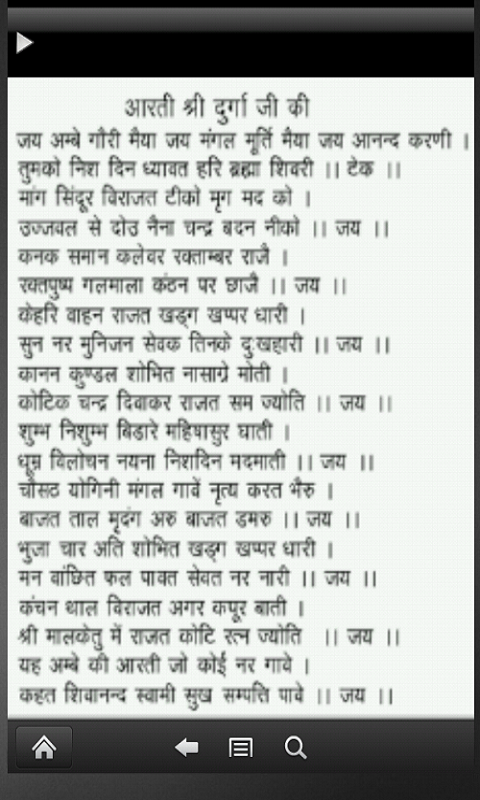 आरती श्री दुर्गा जी की
जय अम्बे गौरी मैया जय मंगल मूर्ति मैया जय आनन्द करणी ।
तुमको निश दिन ध्यावत हरि ब्रह्मा शिवरी ।। टेक ।।
मांग सिंदूर विराजत टीको मृग मद को ।
उज्जवल से दोउ नैना चन्द्र बदन नीको ।। जय ।।
कनक समान कलेवर रक्ताम्बर राजै ।
रक्तपुष्प गलमाला कंठन पर छाजै ।। जय ।।
केहरि वाहन राजत खड्ग खप्पर धारी ।
सुन नर मुनिजन सेवक तिनके दुःखहारी ।। जय ।।
कानन कुण्डल शोभित नासाग्रे मोती ।
कोटिक चन्द्र दिवाकर राजत सम ज्योति ।। जय ।।
शुम्भ निशुम्भ बिडारे महिषासुर घाती ।
धूम्र विलोचन नयना निशदिन मदमाती ।। जय ।।
चौसठ योगिनी मंगल गावें नृत्य करत भैरु ।
बाजत ताल मृदंग अरु बाजत डमरु ।। जय ।।
भुजा चार अति शोभित खड्ग खप्पर धारी ।
मन वांछित फल पावत सेवत नर नारी ।। जय ।।
कंचन थाल विराजत अगर कपूर बाती ।
श्री मालकेतु में राजत कोटि रत्न ज्योति ।। जय ।।
यह अम्बे की आरती जो कोई नर गावे ।
कहत शिवानन्द स्वामी सुख सम्पत्ति पावे ।। जय ।।